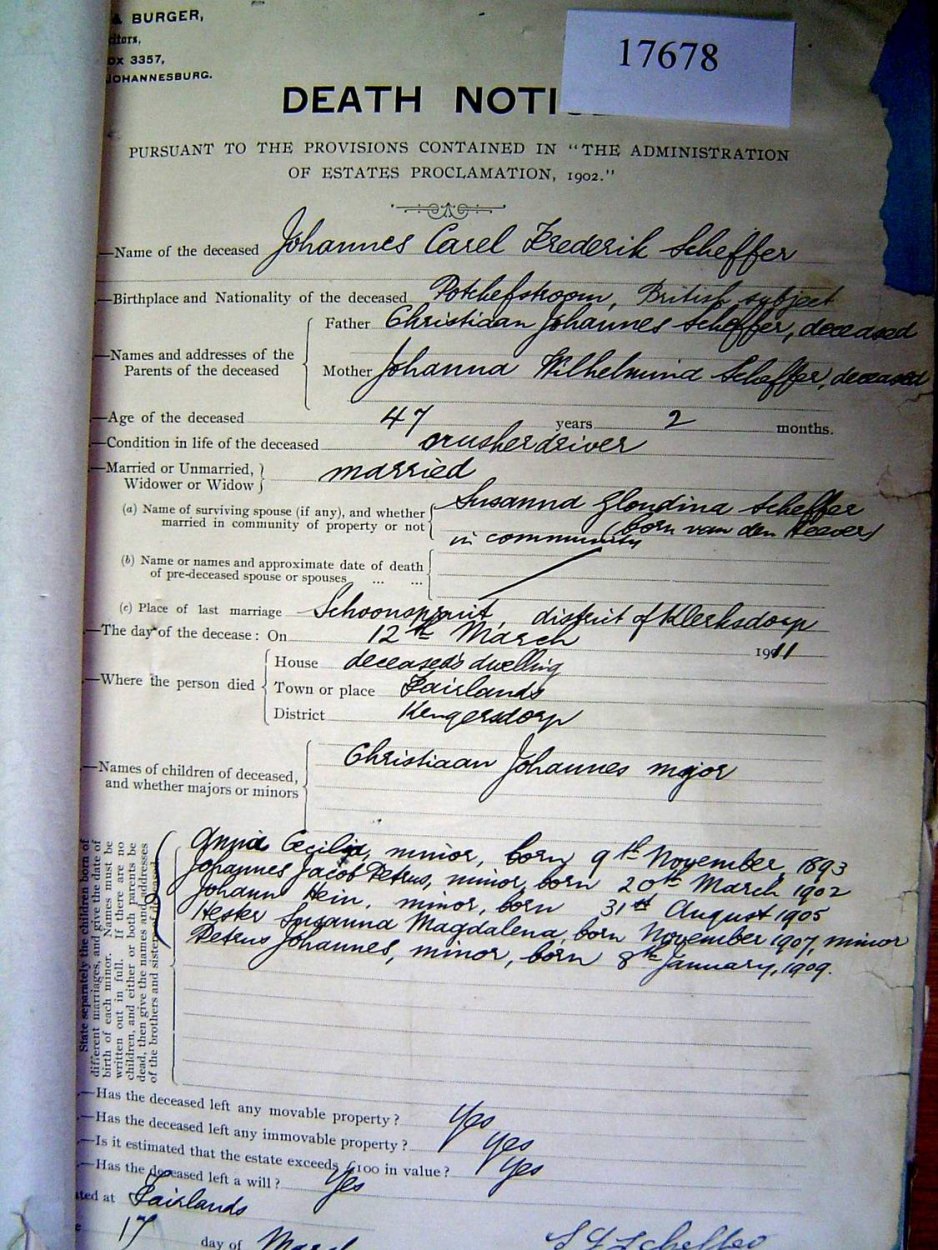 & BURGER,
17678
OX 3357,
JOHANNESBURG.
DEATH NOTI
PURSUANT TO THE PROVISIONS CONTAINED IN "THE ADMINISTRATION
OF ESTATES PROCLAMATION, 1902."
—Name of the deceased Johannes Carel Frederik Scheffer
—Birthplace and Nationality of the deceased Potchefstroom, British subject
—Names and addresses of the Parents of the deceased
Father Christiaan Johannes Scheffer, deceased
Mother Johanna Wilhelmina Scheffer, deceased
—Age of the deceased 47 years 2 months.
—Condition in life of the deceased crusherdriver
—Married or Unmarried,
Widower or Widow married
(a) Name of surviving spouse (if any), and whether Susanna Glondina Scheffer
married in community of property or not (born van den Heever
in community
(b) Name or names and approximate date of death
of pre-deceased spouse or spouses ... ...
(c) Place of last marriage Schoonspruit, district of Klerksdorp
—The day of the decease: On 12th March 1911
—Where the person died
House deceased's dwelling
Town or place Fairlands
District
—Names of children of deceased,
and whether majors or minors
Christiaan Johannes major
State separately the children born of
different marriages, and give the date of
birth of each minor. Names must be
written out in full. If there are no
children, and either or both parents be
dead, then give the names and addresses
of the brothers and sisters
Annie Cecilia, minor, born 9th November 1893
Johannes Jacob Petrus, minor, born 20th March 1902
Johann Hein, minor, born 31st August 1905
Hester Susanna Magdalena, born November 1907, minor
Petrus Johannes, minor, born 8th January, 1909.
—Has the deceased left any movable property? Yes
—Has the deceased left any immovable property? Yes
—Is it estimated that the estate exceeds £100 in value? Yes
—Has the deceased left a will? Yes
ated at Fairlands
17 day of March
S G Scheffer